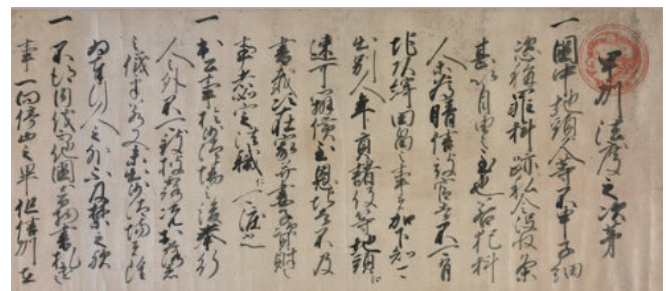 甲州法度之次第
一國中地頭人等不申子細
恣稱罪科跡私令没收条
甚以自由之至也若犯科
人為晴信被官者不可有
地頭綺田畠之事者加下知可
出別人年貢諸役等地頭に
速可辨償至恩地者不及
書載次在家并妻子資財之
事者如定法職に可渡之
一出公事於沙汰場之後奉行
人之外不可致披露況於落着
之儀哉若又未出沙汰場以雖
為奉行人之外不及禁之歟
一不得内儀他國音物書札遣
事一向停止畢但信州在